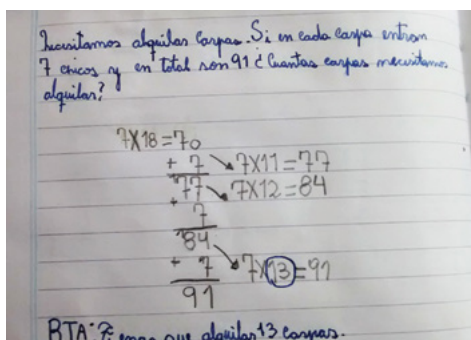 Necesitamos alquilar carpas. Si en cada carpa entran
7 chicos y en total son 91 ¿Cuantas carpas necesitamos
alquilar?
7X18=70
+ 7 7X11=77
77 7X12=84
+ 7
84
+ 7 7X13=91
91
RTA: que alquilar 13 carpas.